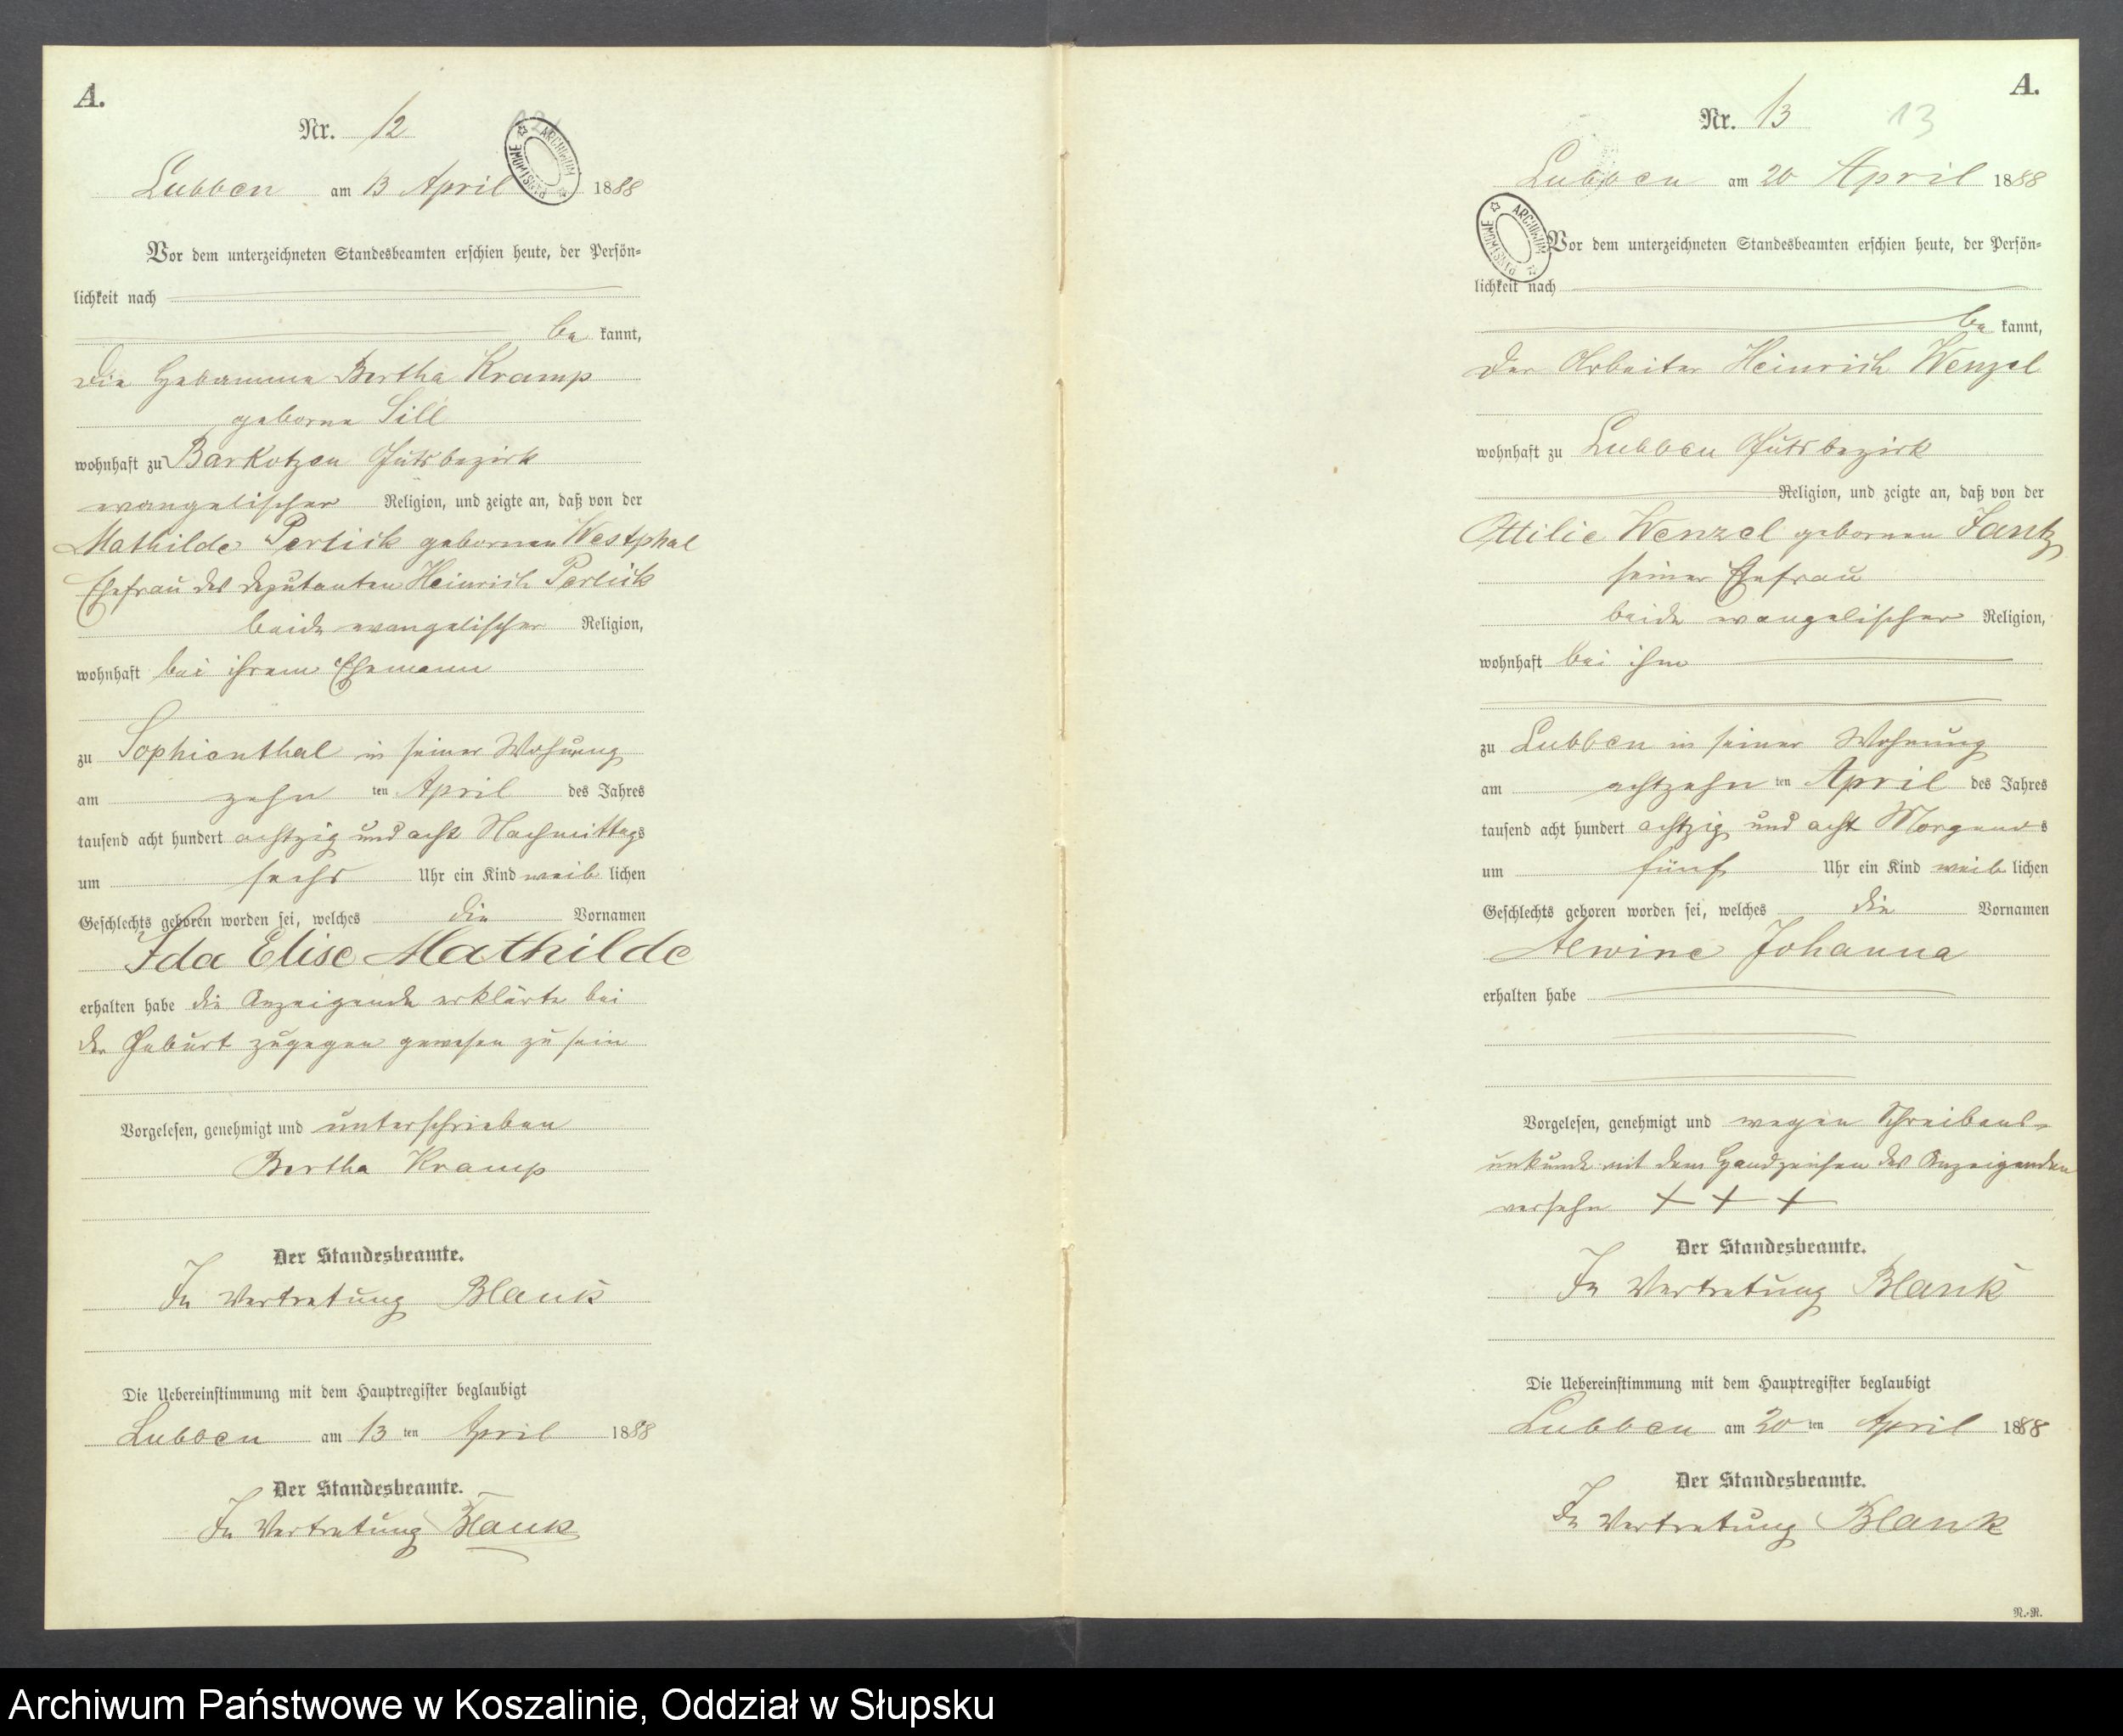 A.
Nr. 12
Lubben am 13 April 1888
ARCHIWUM PAŃSTWOWE
Vor dem unterzeichneten Standesbeamten erschien heute, der Persön-
lichkeit nach
be kannt,
die Hebamme Bertha Kramp
geborne Sill
wohnhaft zu Barkotzen Gutsbezirk
evangelischer Religion, und zeigte an, daß von der
Mathilde Perlick gebornen Westphal
Ehefrau des Deputanten Heinrich Perlick
beide evangelischer Religion,
wohnhaft bei ihrem Ehemann
zu Sophienthal in seiner Wohnung
am zehn ten April des Jahres
tausend acht hundert achtzig und acht Nachmittags
um sechs Uhr ein Kind weib lichen
Geschlechts geboren worden sei, welches die Vornamen
Ida Elise Mathilde
erhalten habe die Anzeigende erklärte bei
der Geburt zugegen gewesen zu sein
Vorgelesen, genehmigt und unterschrieben
Bertha Kramp
Der Standesbeamte.
In Vertretung Blank
Die Uebereinstimmung mit dem Hauptregister beglaubigt
Lubben am 13 ten April 1888
Der Standesbeamte.
In Vertretung Blank
A.
Nr. 13 13
Lubben am 20 April 1888
ARCHIWUM PAŃSTWOWE
Vor dem unterzeichneten Standesbeamten erschien heute, der Persön-
lichkeit nach
be kannt,
der Arbeiter Heinrich Wenzel
wohnhaft zu Lubben Gutsbezirk
Religion, und zeigte an, daß von der
Ottilie Wenzel gebornen Jantz
seiner Ehefrau
beide evangelischer Religion,
wohnhaft bei ihm
zu Lubben in seiner Wohnung
am achtzehn ten April des Jahres
tausend acht hundert achtzig und acht Morgens s
um fünf Uhr ein Kind weib lichen
Geschlechts geboren worden sei, welches die Vornamen
Alwine Johanna
erhalten habe
Vorgelesen, genehmigt und wegen Schreibens-
unkunde mit dem Handzeichen des Anzeigenden
versehn + + +
Der Standesbeamte.
In Vertretung Blank
Die Uebereinstimmung mit dem Hauptregister beglaubigt
Lubben am 20 ten April 1888
Der Standesbeamte.
In Vertretung Blank
N.-R.
Archiwum Państwowe w Koszalinie, Oddział w Słupsku